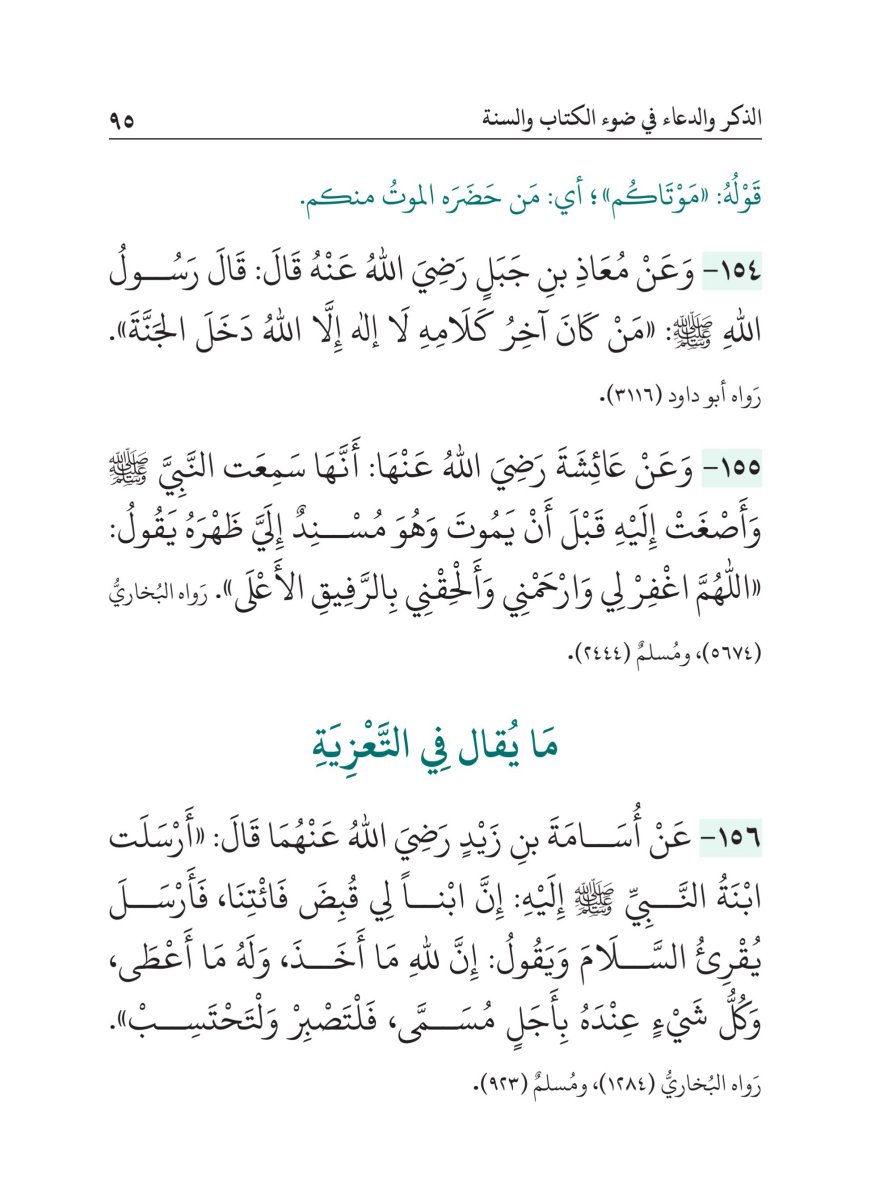 الذكر والدعاء في ضوء الكتاب والسنة ٩٥
قَوْلُهُ: «مَوْتَاكُم»؛ أي: مَن حَضَرَه الموتُ منكم.
١٥٤- وَعَنْ مُعَاذِ بنِ جَبَلٍ رَضِيَ اللهُ عَنْهُ قَالَ: قَالَ رَسُولُ
اللهِ ﷺ: «مَنْ كَانَ آخِرُ كَلَامِهِ لَا إلٰه إِلَّا اللهُ دَخَلَ الجَنَّةَ».
رَواه أبو داود (٣١١٦).
١٥٥- وَعَنْ عَائِشَةَ رَضِيَ اللهُ عَنْهَا: أَنَّهَا سَمِعَت النَّبِيَّ ﷺ
وَأَصْغَتْ إِلَيْهِ قَبْلَ أَنْ يَمُوتَ وَهُوَ مُسْنِدٌ إِلَيَّ ظَهْرَهُ يَقُولُ:
«اللّٰهُمَّ اغْفِرْ لِي وَارْحَمْنِي وَأَلْحِقْنِي بِالرَّفِيقِ الأَعْلَى». رَواه البُخاريُّ
(٥٦٧٤)، ومُسلمٌ (٢٤٤٤).
مَا يُقال فِي التَّعْزِيَةِ
١٥٦- عَنْ أُسَامَةَ بنِ زَيْدٍ رَضِيَ اللهُ عَنْهُمَا قَالَ: «أَرْسَلَت
ابْنَةُ النَّبِيِّ ﷺ إِلَيْهِ: إِنَّ ابْناً لِي قُبِضَ فَائْتِنَا، فَأَرْسَلَ
يُقْرِئُ السَّلَامَ وَيَقُولُ: إِنَّ للهِ مَا أَخَذَ، وَلَهُ مَا أَعْطَى،
وَكُلُّ شَيْءٍ عِنْدَهُ بِأَجَلٍ مُسَمَّى، فَلْتَصْبِرْ وَلْتَحْتَسِبْ».
رَواه البُخاريُّ (١٢٨٤)، ومُسلمٌ (٩٢٣).